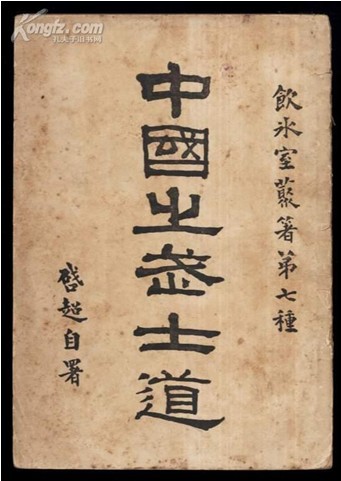 飲氷室叢著第七種
中國之武士道
啓超自署
Kongfz.com
孔夫子旧书网